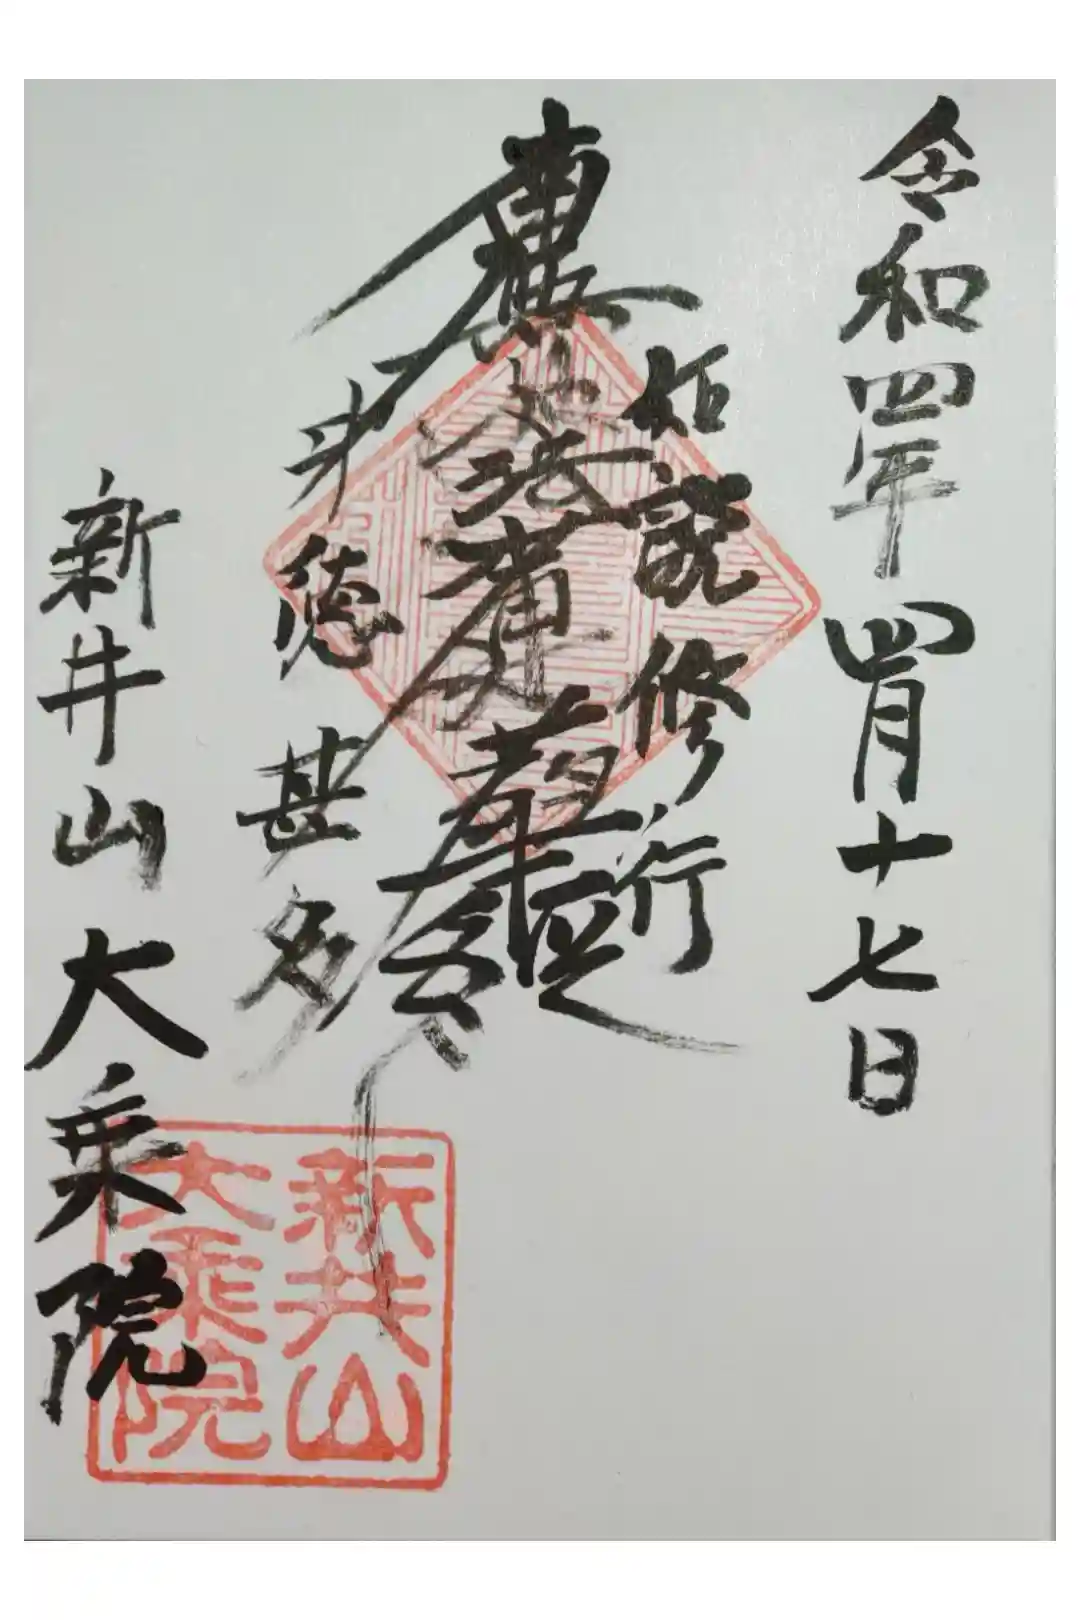 令和四年四月十七日
如説修行
南無妙法蓮華経
功徳甚多
新井山大乗院
新井山
大乗院